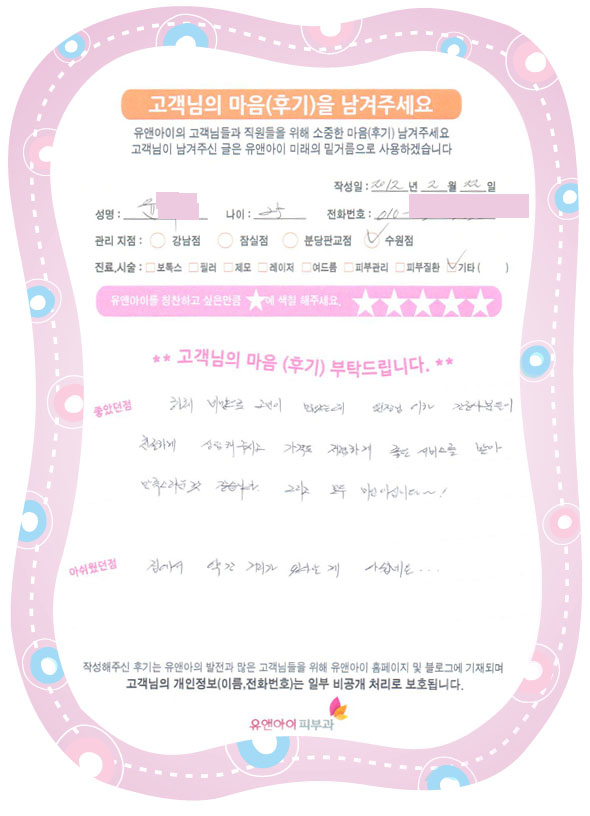 고객님의 마음(후기)을 남겨주세요
유앤아이의 고객님들과 직원들을 위해 소중한 마음(후기) 남겨주세요
고객님이 남겨주신 글은 유앤아이 미래의 밑거름으로 사용하겠습니다
작성일 : 2012 년 2 월 22 일
성명 : 유 나이 : 전화번호 : 010-
관리 지점 : 강남점 잠실점 분당판교점 수원점
진료,시술 : 보톡스 필러 제모 레이저 여드름 피부관리 피부질환 기타 ( )
유앤아이를 칭찬하고 싶은만큼 ★에 색칠 해주세요. ★★★★★
** 고객님의 마음 (후기) 부탁드립니다. **
좋았던점 비만으로 고민이 원장님 이하 간호사분들이
친절하게 상담해주시고 가격도 저렴하게 좋은 서비스를 받아
그리고 모두 미인이십니다~!
아쉬웠던점 집에서 약간 거리가 있다는 게 아쉽네요...
작성해주신 후기는 유앤아의 발전과 많은 고객님들을 위해 유앤아이 홈페이지 및 블로그에 기재되며
고객님의 개인정보(이름,전화번호)는 일부 비공개 처리로 보호됩니다.
유앤아이 피부과